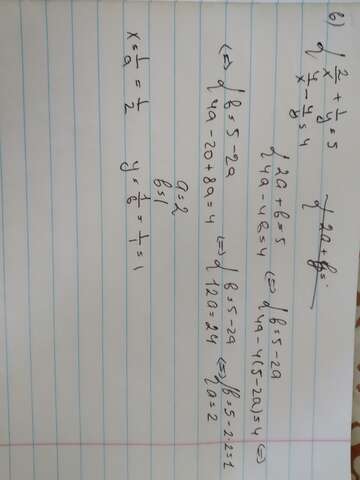 б)
{ 2/x + 1/y = 5
4/x - 4/y = 4
{ 2a + b =
{ 2a + b = 5
4a - 4b = 4 <=> { b = 5 - 2a
4a - 4(5 - 2a) = 4 <=>
<=> { b = 5 - 2a
4a - 20 + 8a = 4 <=> { b = 5 - 2a
12a = 24 <=> { b = 5 - 2·2 = 1
a = 2
a = 2
b = 1
x = 1/a = 1/2 y = 1/b = 1/1 = 1